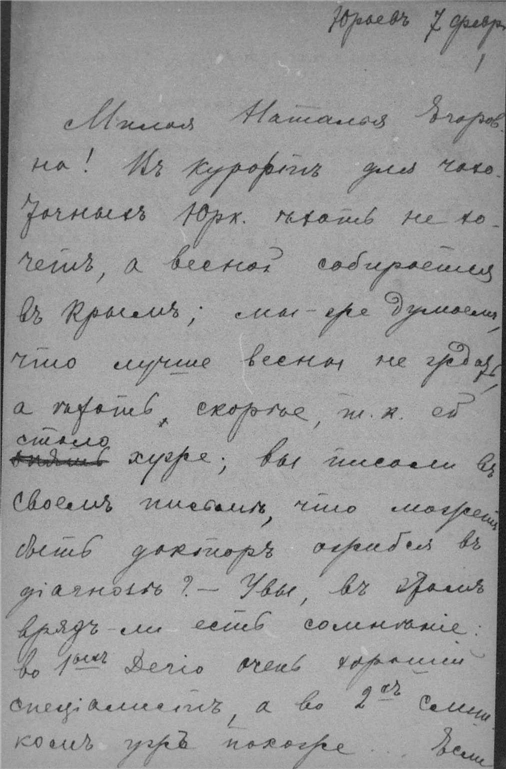 Юрьевъ 7 февр.
Милая Наталья Егоров-
на! Въ курортъ для чахо-
точныхъ Юрк. ѣхать не хо-
четъ, а весной собирается
въ Крымъ; мы-же думаемъ,
что лучше весны не ждать,
а ѣхать, скорѣе, т. к. ей
стало
опять хуже; вы писали въ
своемъ письмѣ, что можетъ
быть докторъ ошибся въ
діагнозѣ? — Увы, въ этомъ
врядъ-ли есть сомнѣніе:
во 1ыхъ Dehio очень хорошій
спеціалистъ, а во 2хъ слиш-
комъ ужъ похоже... Если